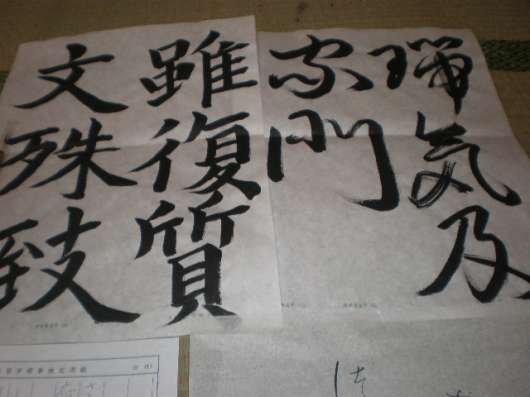 瑞気及
家門
雖復質
文殊致